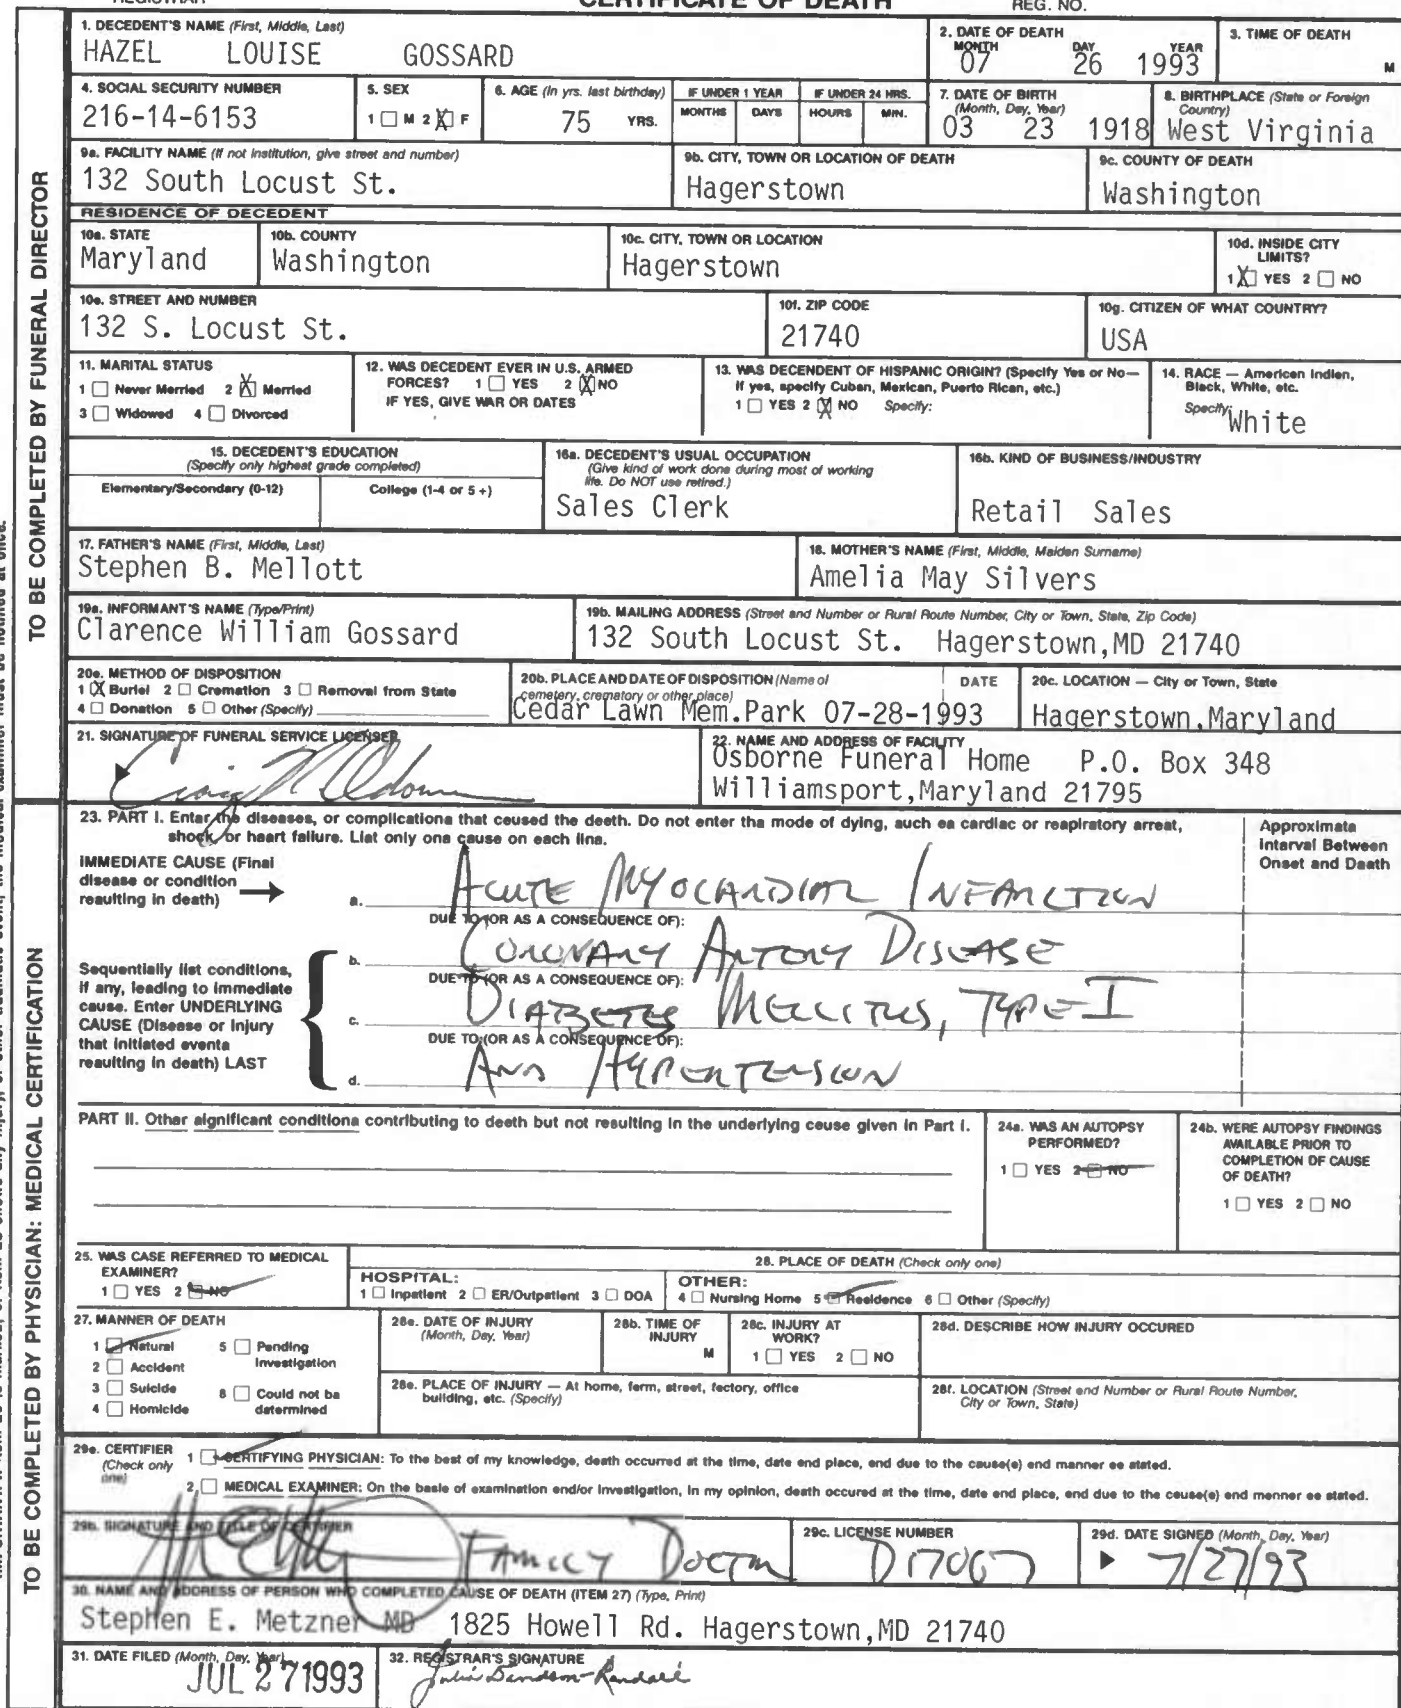 CERTIFICATE OF DEATH
REGISTRAR
REG. NO.
1. DECEDENT'S NAME (First, Middle, Last)
HAZEL LOUISE GOSSARD
2. DATE OF DEATH
MONTH DAY YEAR
07 26 1993
3. TIME OF DEATH
M
4. SOCIAL SECURITY NUMBER
216-14-6153
5. SEX
1 M 2 X F
6. AGE (In yrs. last birthday)
75 YRS.
IF UNDER 1 YEAR
MONTHS DAYS
IF UNDER 24 HRS.
HOURS MIN.
7. DATE OF BIRTH
(Month, Day, Year)
03 23 1918
8. BIRTHPLACE (State or Foreign
Country)
West Virginia
9a. FACILITY NAME (If not institution, give street and number)
132 South Locust St.
9b. CITY, TOWN OR LOCATION OF DEATH
Hagerstown
9c. COUNTY OF DEATH
Washington
RESIDENCE OF DECEDENT
10a. STATE
Maryland
10b. COUNTY
Washington
10c. CITY, TOWN OR LOCATION
Hagerstown
10d. INSIDE CITY
LIMITS?
1 X YES 2 NO
10e. STREET AND NUMBER
132 S. Locust St.
10f. ZIP CODE
21740
10g. CITIZEN OF WHAT COUNTRY?
USA
11. MARITAL STATUS
1 Never Married 2 X Married
3 Widowed 4 Divorced
12. WAS DECEDENT EVER IN U.S. ARMED
FORCES? 1 YES 2 X NO
IF YES, GIVE WAR OR DATES
13. WAS DECENDENT OF HISPANIC ORIGIN? (Specify Yes or No—
If yes, specify Cuban, Mexican, Puerto Rican, etc.)
1 YES 2 X NO Specify:
14. RACE — American Indian,
Black, White, etc.
Specify: White
15. DECEDENT'S EDUCATION
(Specify only highest grade completed)
Elementary/Secondary (0-12) College (1-4 or 5+)
16a. DECEDENT'S USUAL OCCUPATION
(Give kind of work done during most of working
life. Do NOT use retired.)
Sales Clerk
16b. KIND OF BUSINESS/INDUSTRY
Retail Sales
17. FATHER'S NAME (First, Middle, Last)
Stephen B. Mellott
18. MOTHER'S NAME (First, Middle, Maiden Surname)
Amelia May Silvers
19a. INFORMANT'S NAME (Type/Print)
Clarence William Gossard
19b. MAILING ADDRESS (Street and Number or Rural Route Number, City or Town, State, Zip Code)
132 South Locust St. Hagerstown,MD 21740
20a. METHOD OF DISPOSITION
1 X Burial 2 Cremation 3 Removal from State
4 Donation 5 Other (Specify)
20b. PLACE AND DATE OF DISPOSITION (Name of
cemetery, crematory or other place)
DATE
Cedar Lawn Mem.Park 07-28-1993
20c. LOCATION — City or Town, State
Hagerstown,Maryland
21. SIGNATURE OF FUNERAL SERVICE LICENSEE
22. NAME AND ADDRESS OF FACILITY
Osborne Funeral Home P.O. Box 348
Williamsport,Maryland 21795
TO BE COMPLETED BY FUNERAL DIRECTOR
23. PART I. Enter the diseases, or complications that caused the death. Do not enter the mode of dying, such as cardiac or respiratory arrest,
shock, or heart failure. List only one cause on each line.
Approximate
Interval Between
Onset and Death
IMMEDIATE CAUSE (Final
disease or condition
resulting in death)
a. ACUTE MYOCARDIAL INFARCTION
DUE TO (OR AS A CONSEQUENCE OF):
b. CORONARY ARTERY DISEASE
DUE TO (OR AS A CONSEQUENCE OF):
c. DIABETES MELLITUS, TYPE I
DUE TO (OR AS A CONSEQUENCE OF):
d. AND HYPERTENSION
Sequentially list conditions,
if any, leading to immediate
cause. Enter UNDERLYING
CAUSE (Disease or injury
that initiated events
resulting in death) LAST
PART II. Other significant conditions contributing to death but not resulting in the underlying cause given in Part I.
24a. WAS AN AUTOPSY
PERFORMED?
1 YES 2 NO
24b. WERE AUTOPSY FINDINGS
AVAILABLE PRIOR TO
COMPLETION OF CAUSE
OF DEATH?
1 YES 2 NO
25. WAS CASE REFERRED TO MEDICAL
EXAMINER?
1 YES 2 NO
26. PLACE OF DEATH (Check only one)
HOSPITAL:
1 Inpatient 2 ER/Outpatient 3 DOA
OTHER:
4 Nursing Home 5 Residence 6 Other (Specify)
27. MANNER OF DEATH
1 Natural 5 Pending
Investigation
2 Accident
3 Suicide 6 Could not be
determined
4 Homicide
28a. DATE OF INJURY
(Month, Day, Year)
28b. TIME OF
INJURY
M
28c. INJURY AT
WORK?
1 YES 2 NO
28d. DESCRIBE HOW INJURY OCCURED
28e. PLACE OF INJURY — At home, farm, street, factory, office
building, etc. (Specify)
28f. LOCATION (Street and Number or Rural Route Number,
City or Town, State)
29a. CERTIFIER
(Check only
one)
1 CERTIFYING PHYSICIAN: To the best of my knowledge, death occurred at the time, date and place, and due to the cause(s) and manner as stated.
2 MEDICAL EXAMINER: On the basis of examination and/or investigation, in my opinion, death occured at the time, date and place, and due to the cause(s) and manner as stated.
29b. SIGNATURE AND TITLE OF CERTIFIER
FAMILY DOCTOR
29c. LICENSE NUMBER
D17067
29d. DATE SIGNED (Month, Day, Year)
7/27/93
30. NAME AND ADDRESS OF PERSON WHO COMPLETED CAUSE OF DEATH (ITEM 27) (Type, Print)
Stephen E. Metzner MD 1825 Howell Rd. Hagerstown,MD 21740
31. DATE FILED (Month, Day, Year)
JUL 27 1993
32. REGISTRAR'S SIGNATURE
TO BE COMPLETED BY PHYSICIAN: MEDICAL CERTIFICATION